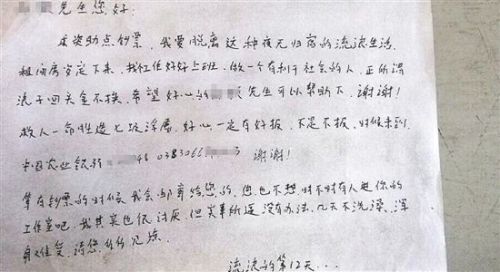 先生您好:
求资助点钞票,我要脱离这种夜无归宿的流浪生活,
租间房安定下来,找红作好好上班,做一个有利于社会的人,正所谓
浪子回头金不换,希望好心的 先生可以帮助下,谢谢!
救人一命胜造七级浮屠,好心一定有好报,不是不报,时候未到.
中国农业银行 48 0383066 3 谢谢!
等有钞票的时候我会邮寄给您的,您也不想时不时有人进你的
工作室吧,我其实也很讨厌,但实事所逼没有办法,几天不洗澡,浑
身难受,请您 见谅.
流浪的第12天...